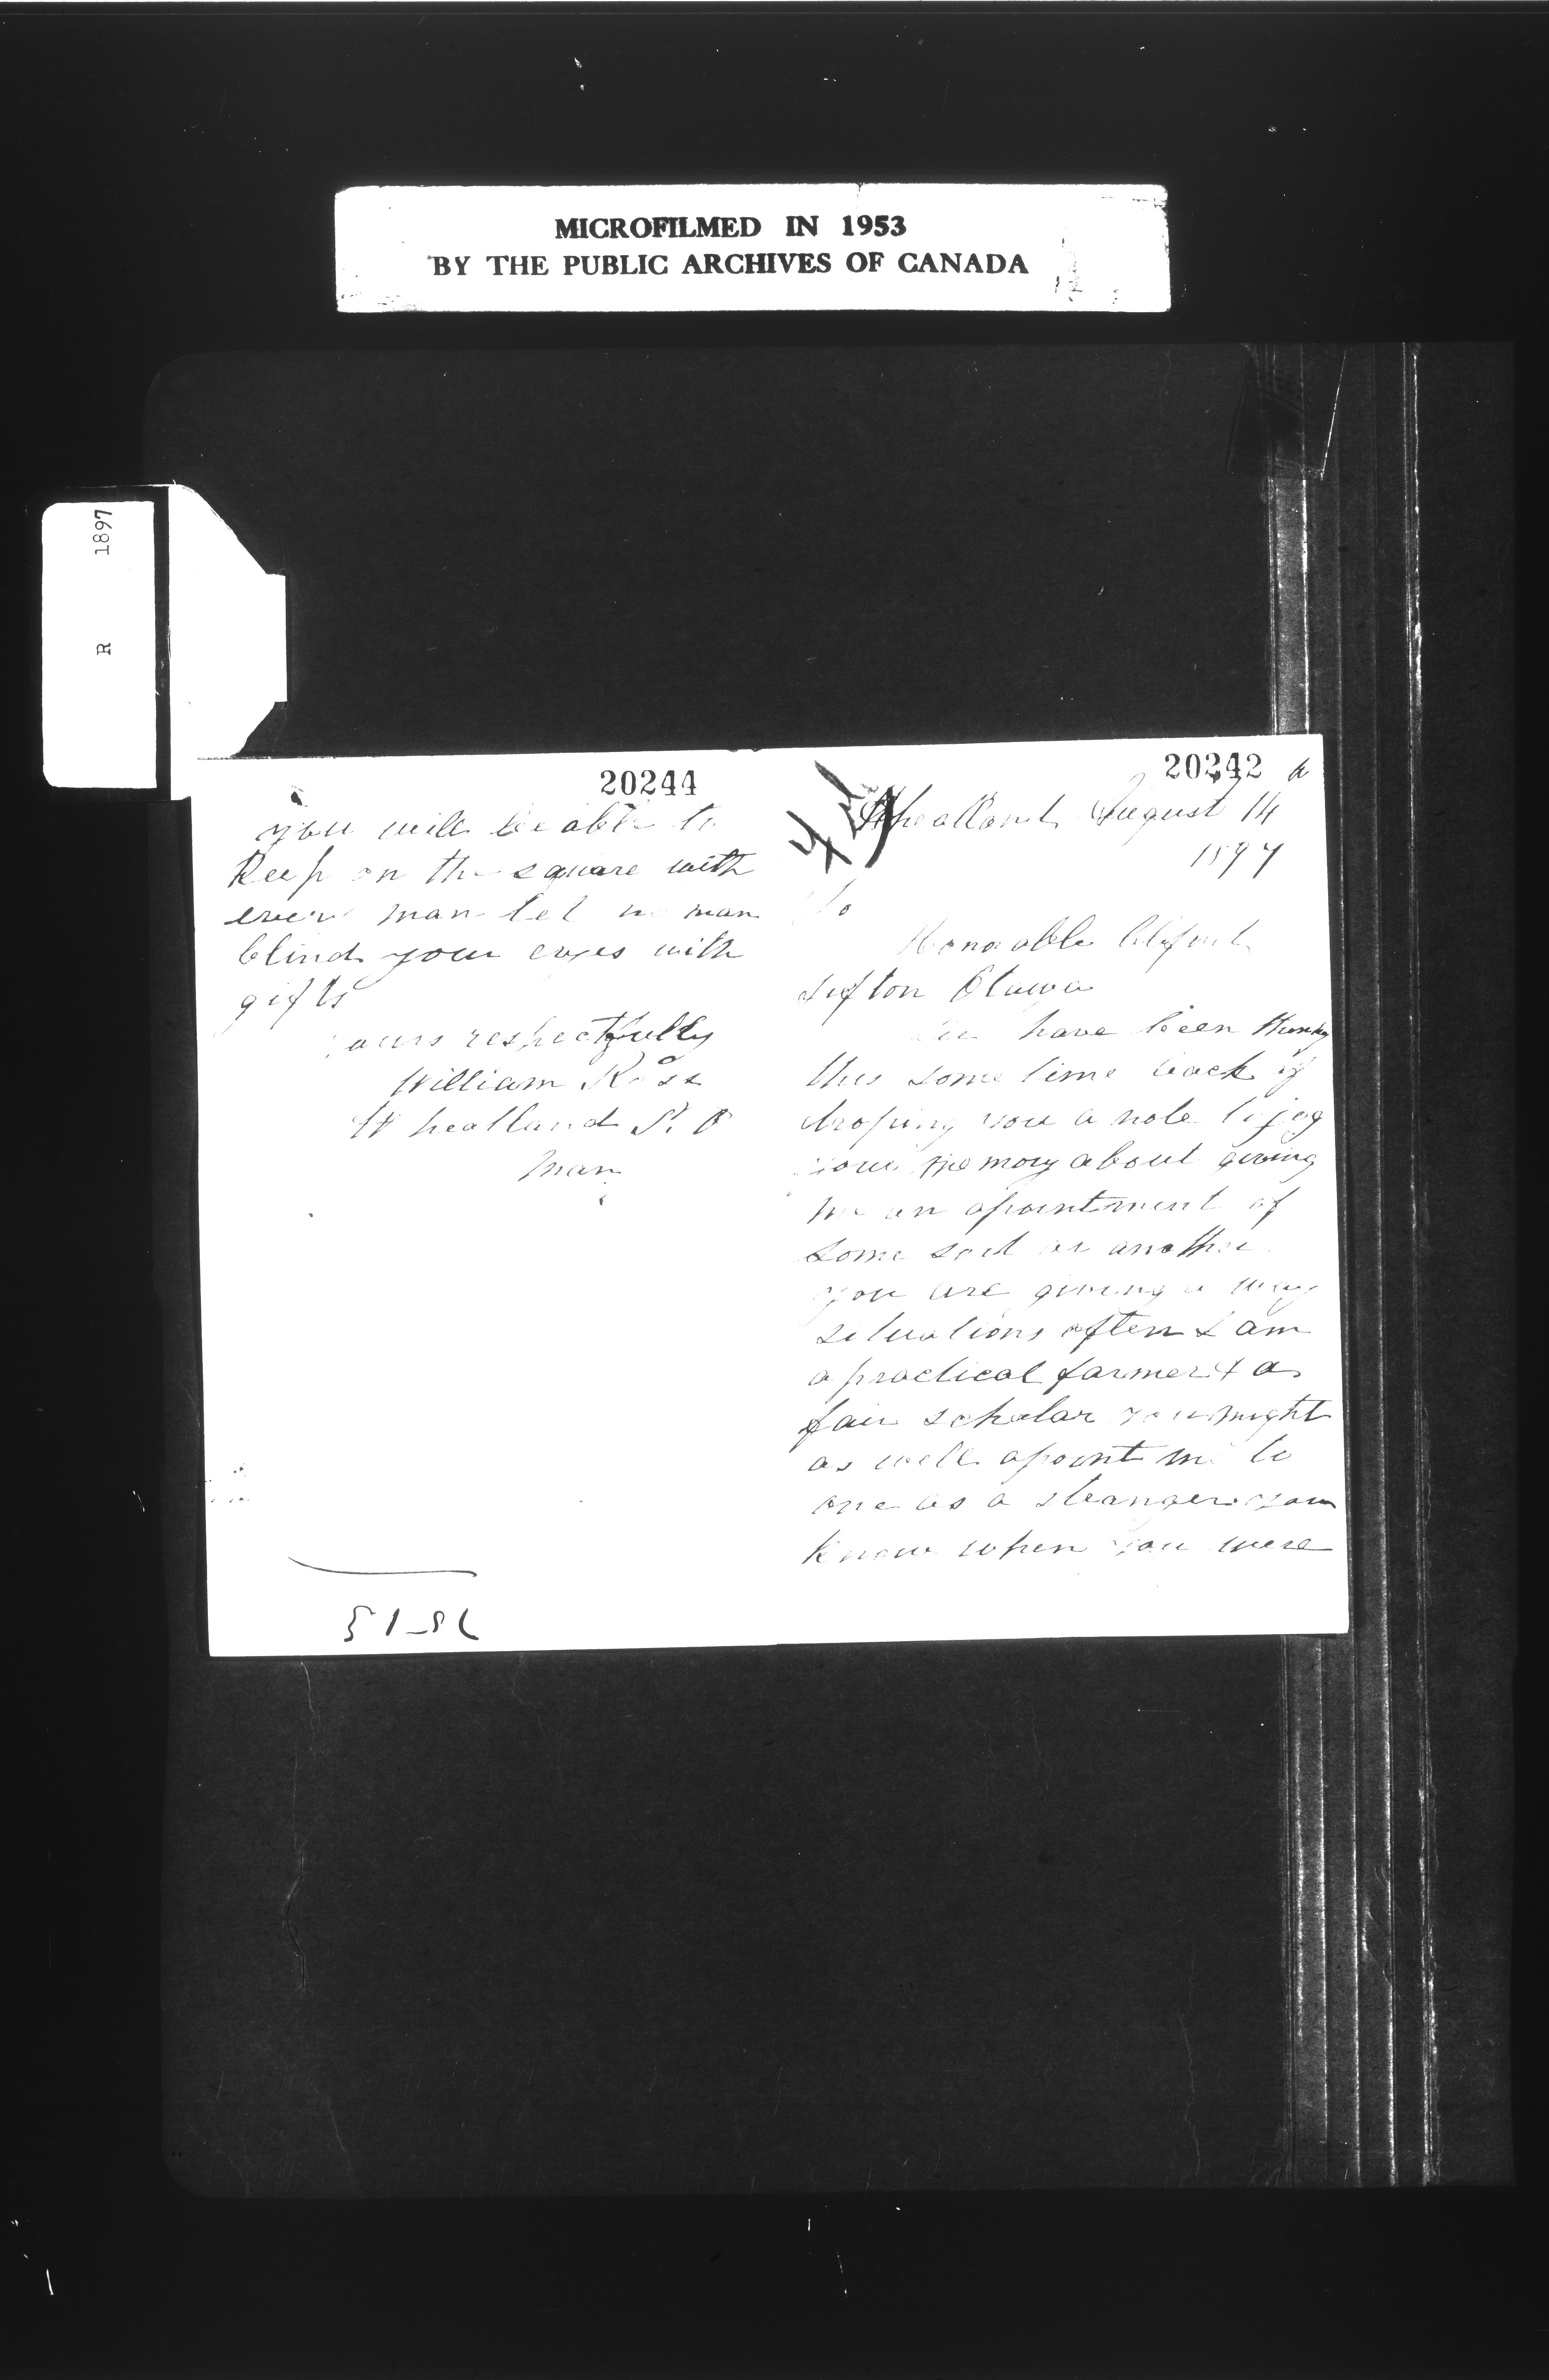 MICROFILMED IN 1953
BY THE PUBLIC ARCHIVES OF CANADA
R 1897
20244
you will be able to
Keep on the square with
every man let no man
blind your eyes with
gifts
yours respectfully
William Ross
Wheatland P. O
Man
20242 a
Wheatland August 14
1897
To
Honorable Cliford
Sifton Otawa
have been
this some time back of
droping you a note to jog
your memory about giving
me an apointment of
some sort or another
you are giving a way
situations often I am
a practical farmer & a
fair scholar you might
as well apoint me to
one as a stranger you
know when you were